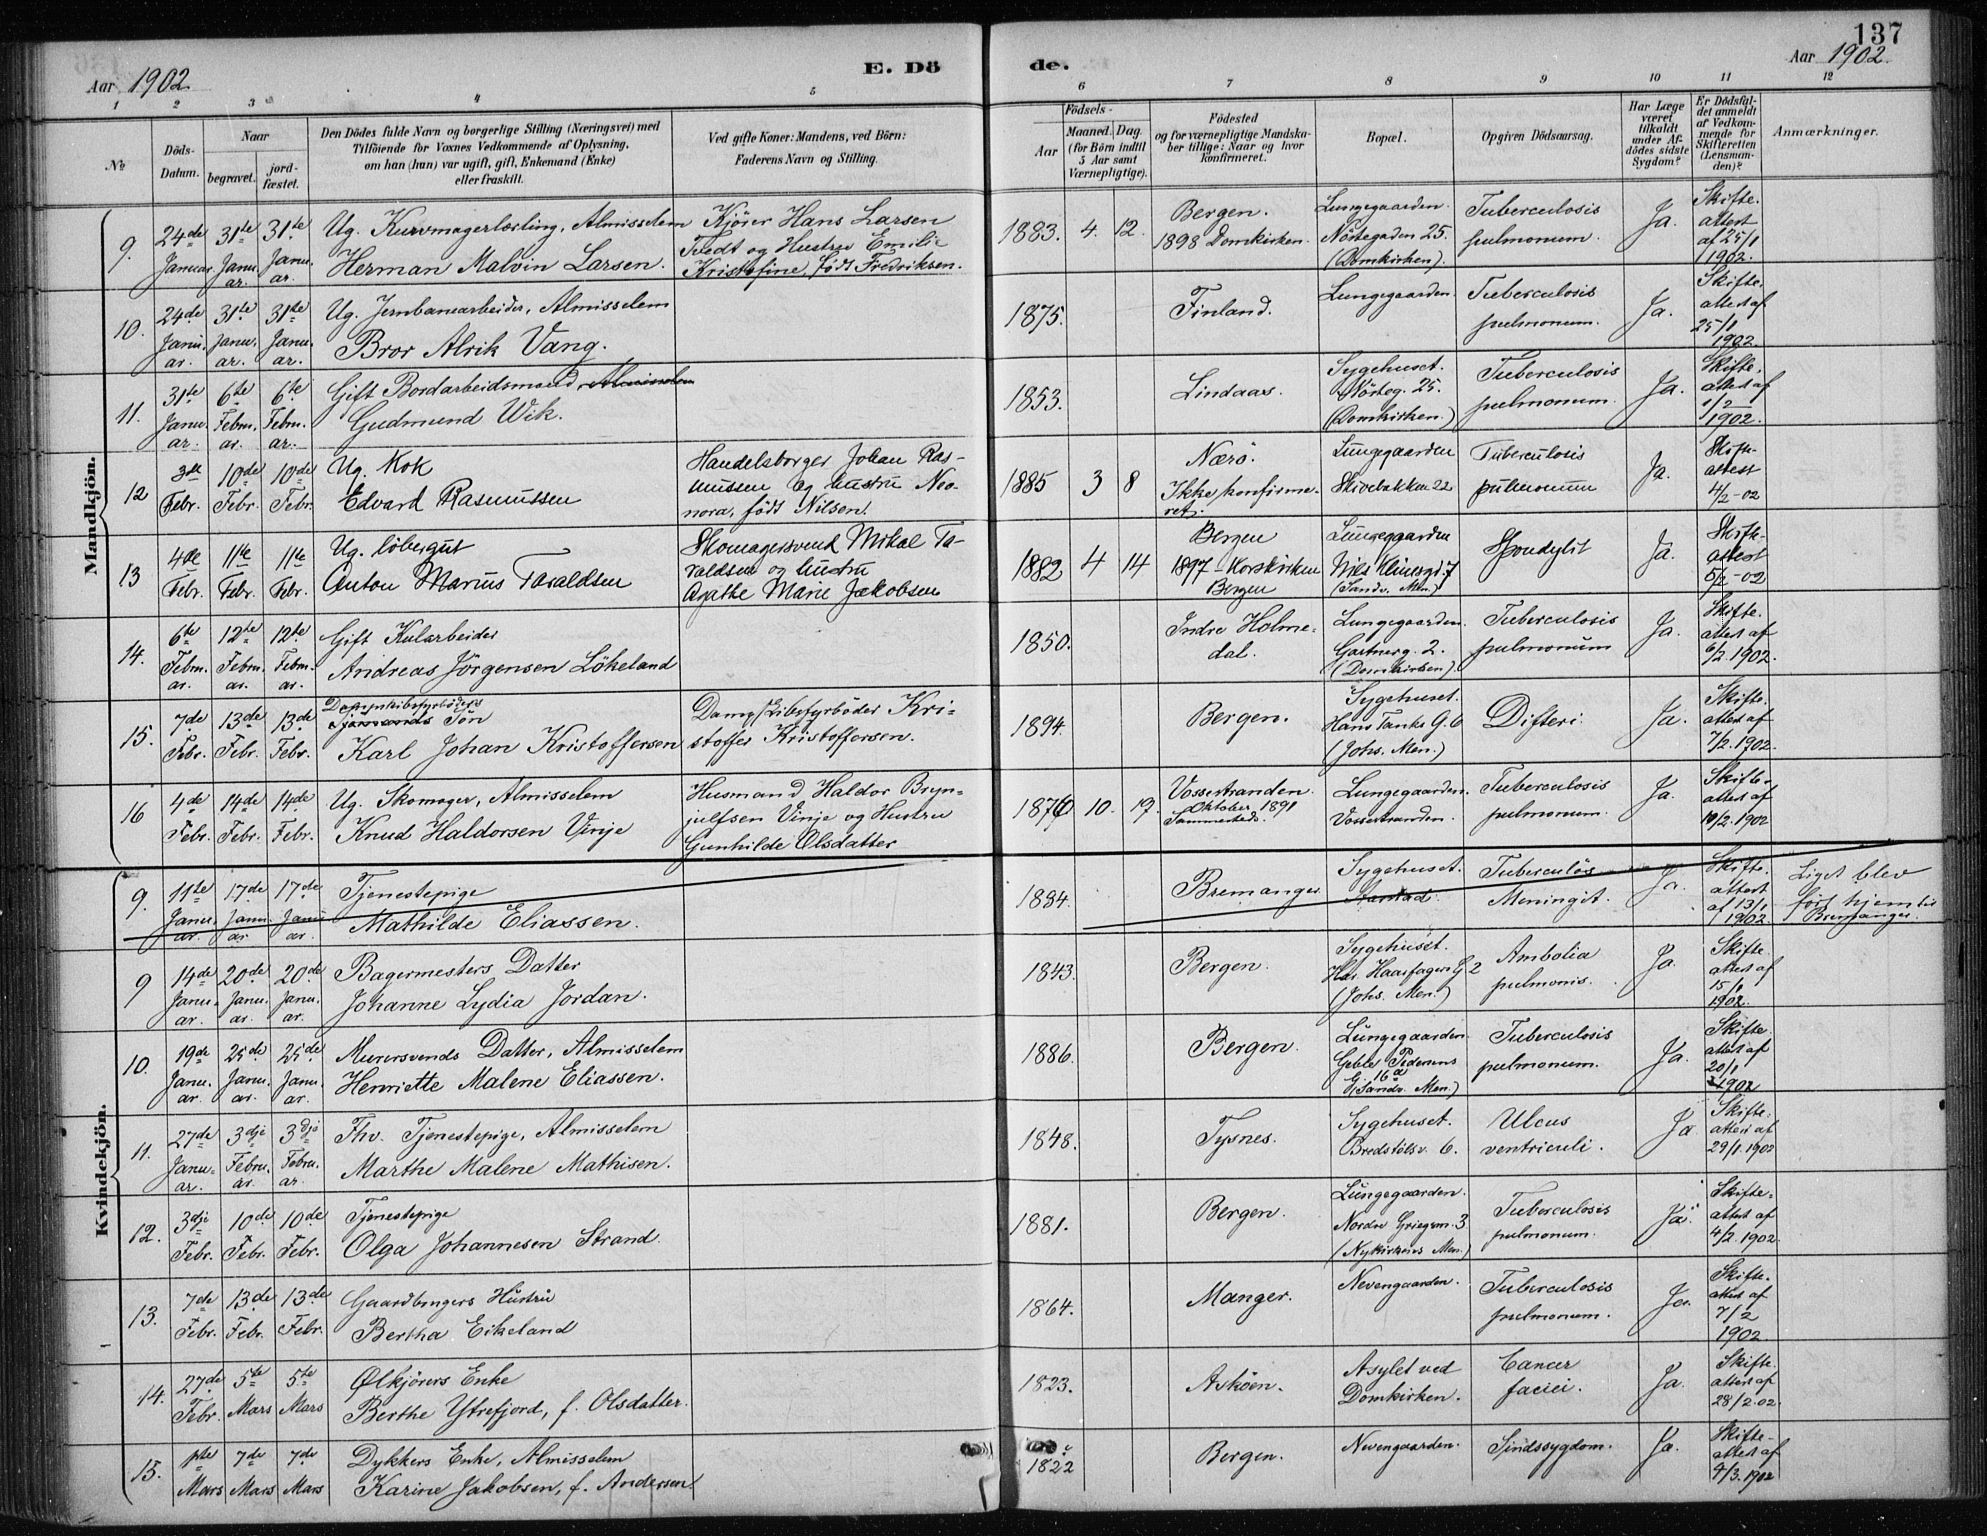 137
Aar 1902.
E. Dö
de.
Aar 1902.
1 2 3 4 5 6 7 8 9 10 11 12
No
Döds-Datum.
Naar
begravet.
jord-fæstet.
Den Dödes fulde Navn og borgerlige Stilling (Næringsvei) med
Tilföiende for Voxnes Vedkommende af Oplysning,
om han (hun) var ugift, gift, Enkemand (Enke)
eller fraskilt.
Ved gifte Koner: Mandens, ved Börn:
Faderens Navn og Stilling.
Födsels-
Aar
Maaned. Dag.
(for Börn indtil
5 Aar samt
Værnepligtige).
Födested
og for værnepligtige Mandska-
ber tillige: Naar og hvor
konfirmeret.
Bopæl.
Opgiven Dödsaarsag.
Har Læge
været
tilkaldt
under Af-
dödes sidste
Sygdom?
Er Dödsfal-
det anmeldt
af Vedkom-
mende for
Skifteretten
(Lensman-
den)?
Anmærkninger.
Mandkjön.
9. 24de Januar. 31te Januar. 31te Januar.
Ug. Kurvmagerlærling, Almisselem
Herman Malvin Larsen.
Kjörer Hans Larsen
Tvedt og Hustru Emilie
Kristofine, födt Fredriksen.
1883. 4. 12.
Bergen.
1898 Domkirken.
Lungegaarden.
Nöstegaden 25.
(Domkirken).
Tuberculosis
pulmonum.
Ja.
Skifte-
attest
af 25/1
1902.
10. 24de Januar. 31te Januar. 31te Januar.
Ug. Jernbanearbeider, Almisselem
Bror Alrik Vang.
1875.
Finland.
Lungegaarden.
Tuberculosis
pulmonum.
Ja.
Skifte-
attest af
25/1
1902
11. 31te Januar. 6te Februar. 6te Februar.
Gift Bordarbeidsmand, Almisselem
Gudmund Wik.
1853.
Lindaas.
Sygehuset.
Nösteg. 25.
(Domkirken.)
Tuberculosis
pulmonum.
Ja.
Skifte-
attest af
1/2
1902.
12 3die Febr. 10de Febr. 10de Febr.
Ug. Kok
Edvard Rasmussen
Handelsborger Johan Ras-
mussen og hustru Noo-
nora, födt Nilsen.
1885 3 8
Nærö.
Ikke konfirme-
ret.
Lungegaarden
Skivebakken 22
Tuberculosis
pulmonum
Ja.
Skifte-
attest
4/2-02
13 4de Febr. 11te Febr. 11te Febr.
Ug. löbergut
Anton Marius Taraldsen
Skomagersvend Mikal Ta-
raldsen og hustru
Agathe Marie Jakobsen
1882 4 14
Bergen
1897 Korskirken
Bergen
Lungegaarden
Nils Klimsgd. 7
(Sandv. Men.)
Spondylit
Ja.
Skifte-
attest
5/2-02
14. 6te Februar. 12te Februar. 12te Februar.
Gift Kularbeider
Andreas Jörgensen Lökeland
1850.
Indre Holme-
dal.
Lungegaarden.
Gartnerg. 2.
(Domkirken).
Tuberculosis
pulmonum
Ja.
Skifte-
attest af
6/2. 1902.
15. 7de Febr. 13de Febr. 13de Febr.
Dampskibsfyrböders
Sön
Karl Johan Kristoffersen
Dampskibsfyrböder Kri-
stoffer Kristoffersen.
1894.
Bergen.
Sygehuset.
Hans Tanks G. 6
(Johs. Men.)
Difteri.
Ja.
Skifte-
attest af
7/2. 1902.
16 4de Febr. 14de Febr. 14de Febr.
Ug. Skomager, Almisselem
Knud Haldorsen Vinje
Husmand Haldor Bryn-
julfsen Vinje og Hustru
Gunhilde Olsdatter
1876 10. 19.
Vossestranden.
Oktober 1891
Sammesteds.
Lungegaarden.
Vossestranden.
Tuberculosis
pulmonum.
Ja.
Skifte-
attest af
10/2. 1902
Kvindekjön.
9. 11te Januar. 17de Januar. 17de Januar
Tjenestepige
Mathilde Eliassen.
1884.
Bremanger
Sygehuset.
Tuberculös
Meningit.
Ja.
Skifte-
attest
af 13/1
1902.
Liget blev
fört hjem til
Bremanger.
9 14de Januar. 20de Januar. 20de Januar.
Bagermesters Datter
Johanne Lydia Jordan.
1843.
Bergen.
Sygehuset.
Har. Haarfagers G. 2
(Johs. Men.)
Ambolia
pulmonis.
Ja.
Skifte
attest af
15/1
1902.
10. 19de Januar. 25de Januar. 25de Januar.
Murersvends Datter, Almisselem
Henriette Malene Eliassen.
1886.
Bergen.
Lungegaarden
Geble Pedersens
G. 16a
(Sandv. Men.)
Tuberculosis
pulmonum.
Ja.
Skifte
attest af
20/1
1902
11. 27de Januar. 3dje Februar. 3dje Februar
Fhv. Tjenestepige, Almisselem
Marthe Malene Mathisen.
1848.
Tysnes.
Sygehuset.
Bredstölsv. 6.
Ulcus
ventriculi.
Ja
Skifte-
attest af
29/1. 1902
12. 3dje Febr. 10de Febr. 10de Febr.
Tjenestepige
Olga Johannesen Strand.
1881.
Bergen.
Lungegaarden.
Nordre Griegsm. 3
(Nykirkens Men.)
Tuberculosis
pulmonum.
Ja.
Skifte-
attest af
4/2. 1902.
13. 7de Febr. 13de Febr. 13de Febr.
Gaardbrugers Hustru
Bertha Eikeland
1864.
Manger.
Nevengaarden.
Tuberculosis
pulmonum.
Ja.
Skifte-
attest af
7/2
1902.
14. 27de Febr. 5te Mars 5te Mars
Ølkjörers Enke
Berthe Ytrefjord, f. Olsdatter.
1823.
Asköen.
Asylet ved
Domkirken.
Cancer
faciei.
Ja.
Skifte-
attest af
28/2. 02.
15. 1ste Mars 7de Mars 7de Mars
Dykkers Enke, Almisselem
Karine Jakobsen, f. Andersen.
1822
Bergen.
Nevengaarden.
Sindssygdom.
Ja.
Skifte-
attest af
4/3. 1902